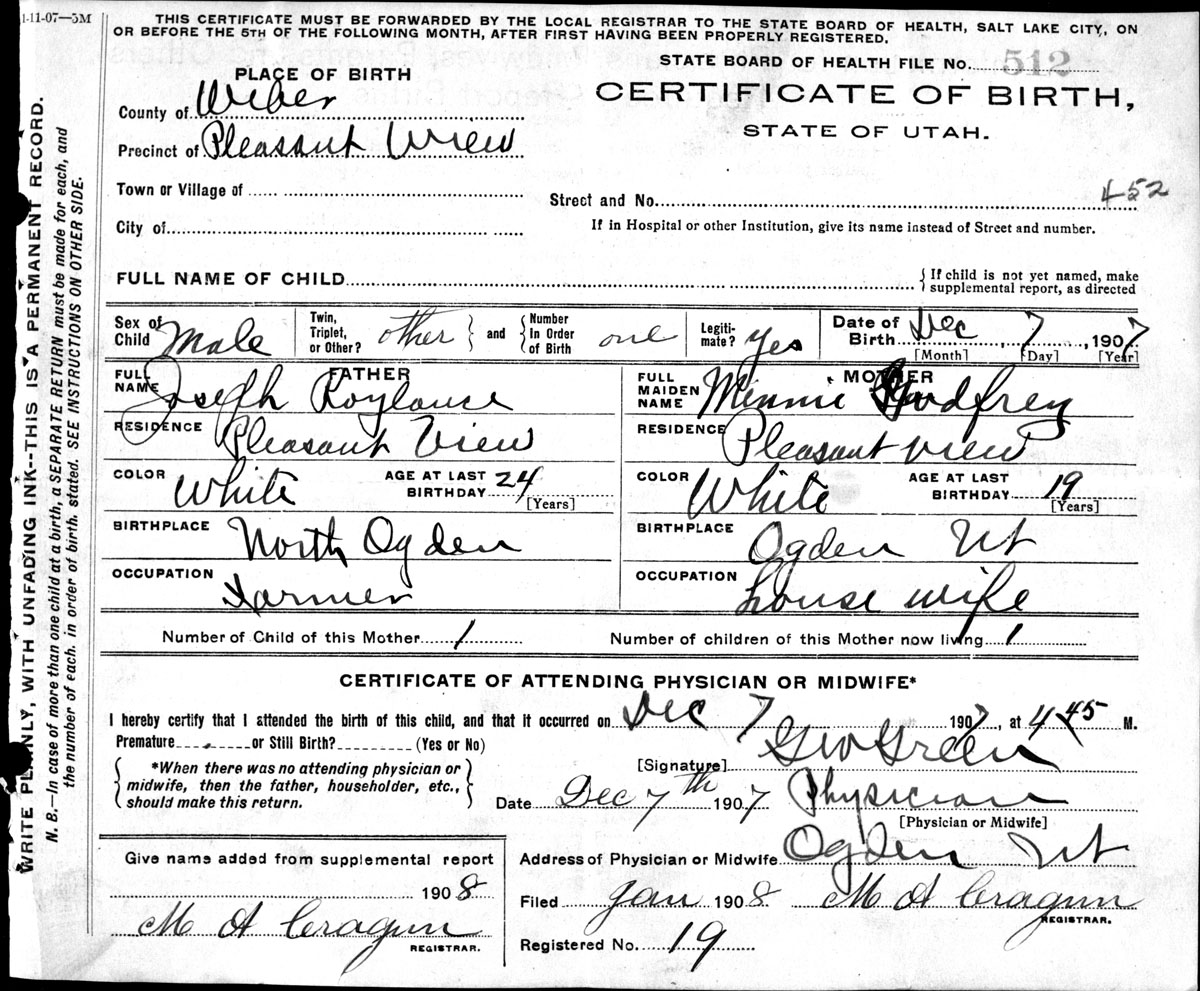 1-11-07—5M
THIS CERTIFICATE MUST BE FORWARDED BY THE LOCAL REGISTRAR TO THE STATE BOARD OF HEALTH, SALT LAKE CITY, ON
OR BEFORE THE 5TH OF THE FOLLOWING MONTH, AFTER FIRST HAVING BEEN PROPERLY REGISTERED.
STATE BOARD OF HEALTH FILE No. 512
PLACE OF BIRTH
CERTIFICATE OF BIRTH,
STATE OF UTAH.
County of Weber
Precinct of Pleasant View
Town or Village of
Street and No. 452
City of
If in Hospital or other Institution, give its name instead of Street and number.
FULL NAME OF CHILD
{ If child is not yet named, make supplemental report, as directed
Sex of Child Male Twin, Triplet, or Other? other } and { Number In Order of Birth one Legitimate? Yes Date of Birth Dec, 7, 1907
[Month] [Day] [Year]
FATHER
FULL NAME Joseph Roylance
RESIDENCE Pleasant View
COLOR White AGE AT LAST BIRTHDAY 24 [Years]
BIRTHPLACE North Ogden
OCCUPATION Farmer
MOTHER
FULL MAIDEN NAME Minnie Godfrey
RESIDENCE Pleasant view
COLOR White AGE AT LAST BIRTHDAY 19 [Years]
BIRTHPLACE Ogden Ut
OCCUPATION house wife
Number of Child of this Mother 1 Number of children of this Mother now living 1
CERTIFICATE OF ATTENDING PHYSICIAN OR MIDWIFE*
I hereby certify that I attended the birth of this child, and that it occurred on Dec 7 1907, at 4 45 M.
Premature or Still Birth? (Yes or No)
[Signature] Geo Green
{ *When there was no attending physician or
midwife, then the father, householder, etc.,
should make this return. }
Date Dec 7th 1907 Physician
[Physician or Midwife]
Address of Physician or Midwife Ogden Ut
Give name added from supplemental report
1908
M A Cragun
REGISTRAR.
Filed Jan 1908 M A Cragun
REGISTRAR.
Registered No. 19
WRITE PLAINLY, WITH UNFADING INK--THIS IS A PERMANENT RECORD.
N. B.—In case of more than one child at a birth, a SEPARATE RETURN must be made for each, and
the number of each, in order of birth, stated. SEE INSTRUCTIONS ON OTHER SIDE.